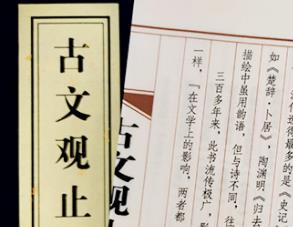 古文观止
古文观止
一样，『在文学上的影响，两者都
三百多年来，此书流传极广，影
描绘中虽用韵语，但与诗不同，往
如《楚辞·卜居》，陶渊明《归去
得最多的是《史记